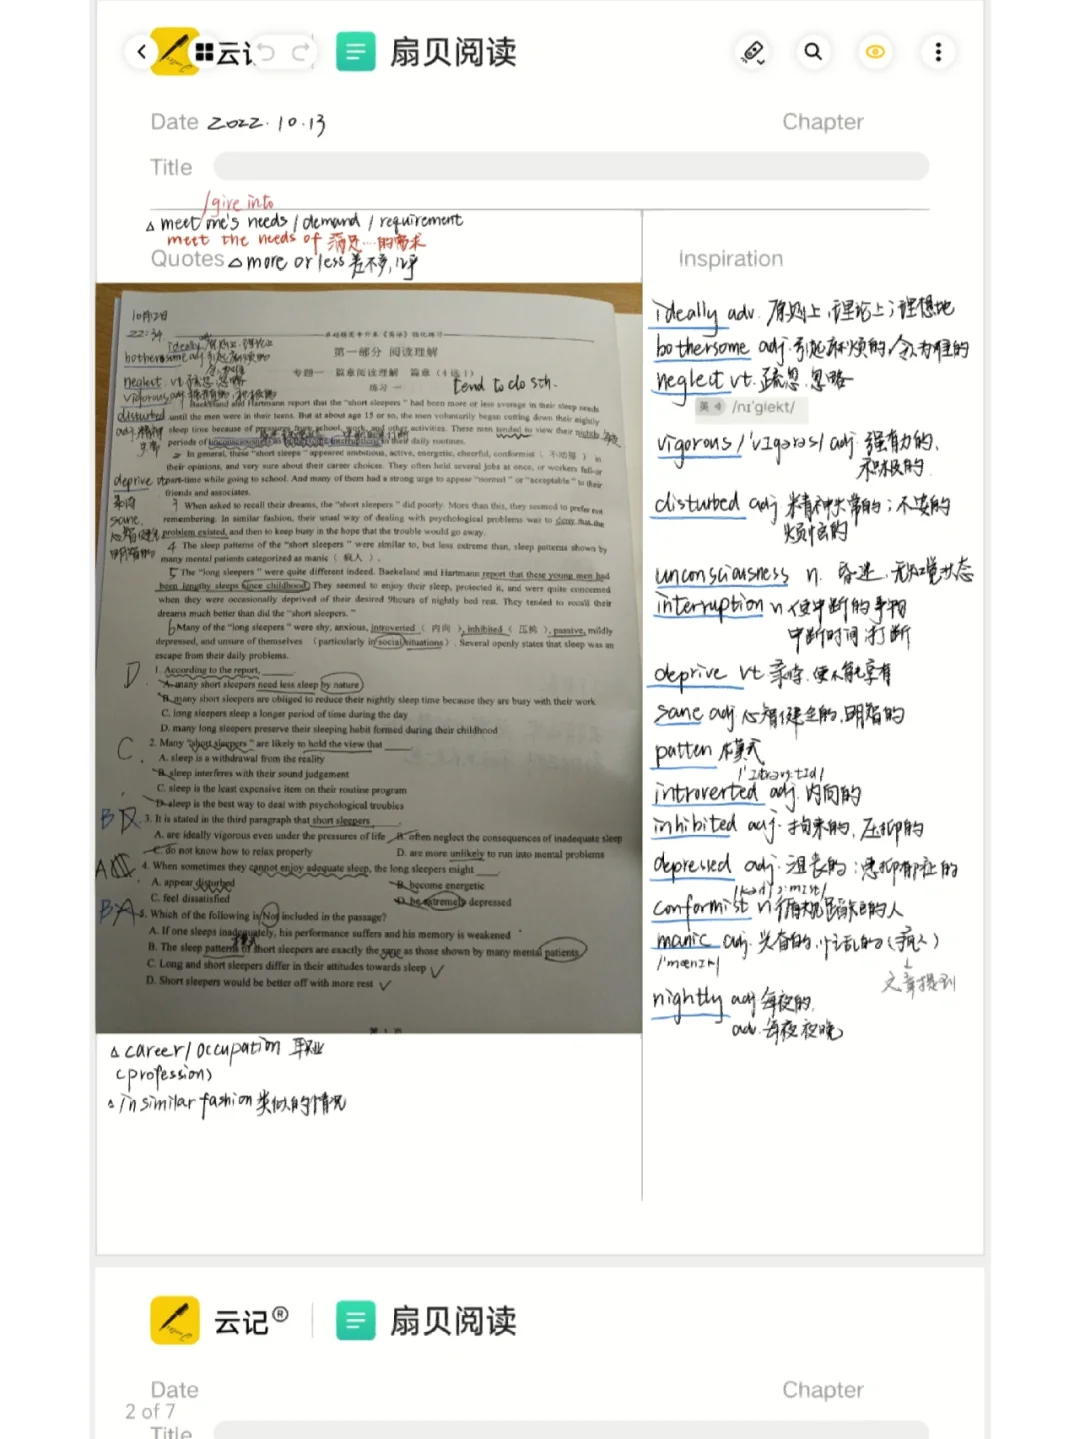 云记
扇贝阅读
Date 2022.10.13
Chapter
Title
/give into
△ meet one's needs / demand / requirement
meet the needs of 满足…的需求
Quotes △ more or less 差不多,几乎
Inspiration
10月12日
22:34
ideally 原则上,理论上
bothersome adj 引起麻烦的
neglect vt. 疏忽,忽略
vigorous adj
disturbed
deprive vt
sane
第一部分 阅读理解
专题一 篇章阅读理解 篇章(4选1)
练习一
tend to do sth.
Baekeland and Hartmann report that the "short sleepers" had been more or less average in their sleep needs
until the men were in their teens. But at about age 15 or so, the men voluntarily began cutting down their nightly
sleep time because of pressures from school, work, and other activities. These men tended to view their nightly
periods of unconsciousness as interruptions in their daily routines.
2 In general, these "short sleeps" appeared ambitious, active, energetic, cheerful, conformist (不动摇) in
their opinions, and very sure about their career choices. They often held several jobs at once, or workers full-or
part-time while going to school. And many of them had a strong urge to appear "normal" or "acceptable" to their
friends and associates.
3 When asked to recall their dreams, the "short sleepers" did poorly. More than this, they seemed to prefer not
remembering. In similar fashion, their usual way of dealing with psychological problems was to deny that the
problem existed, and then to keep busy in the hope that the trouble would go away.
4 The sleep patterns of the "short sleepers" were similar to, but less extreme than, sleep patterns shown by
many mental patients categorized as manic (疯人).
5 The "long sleepers" were quite different indeed. Baekeland and Hartmann report that these young men had
been lengthy sleeps since childhood. They seemed to enjoy their sleep, protected it, and were quite concerned
when they were occasionally deprived of their desired 9hours of nightly bed rest. They tended to recall their
dreams much better than did the "short sleepers."
6 Many of the "long sleepers" were shy, anxious, introverted (内向), inhibited (压抑), passive, mildly
depressed, and unsure of themselves (particularly in social situations). Several openly states that sleep was an
escape from their daily problems.
D 1. According to the report, ____
A. many short sleepers need less sleep by nature
B. many short sleepers are obliged to reduce their nightly sleep time because they are busy with their work
C. long sleepers sleep a longer period of time during the day
D. many long sleepers preserve their sleeping habit formed during their childhood
C 2. Many "short sleepers" are likely to hold the view that ____
A. sleep is a withdrawal from the reality
B. sleep interferes with their sound judgement
C. sleep is the least expensive item on their routine program
D. sleep is the best way to deal with psychological troubles
B 3. It is stated in the third paragraph that short sleepers ____
A. are ideally vigorous even under the pressures of life B. often neglect the consequences of inadequate sleep
C. do not know how to relax properly D. are more unlikely to run into mental problems
A 4. When sometimes they cannot enjoy adequate sleep, the long sleepers might ____
A. appear disturbed B. become energetic
C. feel dissatisfied D. be extremely depressed
B A 5. Which of the following is Not included in the passage?
A. If one sleeps inadequately, his performance suffers and his memory is weakened
B. The sleep patterns of short sleepers are exactly the same as those shown by many mental patients
C. Long and short sleepers differ in their attitudes towards sleep ✓
D. Short sleepers would be better off with more rest ✓
第 1 页
△ career / occupation 职业
(profession)
△ in similar fashion 类似的情况
ideally adv. 原则上,理论上;理想地
bothersome adj. 引起麻烦的,令人为难的
neglect vt. 疏忽,忽略
英 /nɪ'ɡlekt/
vigorous /'vɪgərəs/ adj 强有力的,
积极的
disturbed adj 精神失常的;不安的
烦恼的
unconsciousness n. 昏迷,无知觉状态
interruption n 使中断的事物
中断时间 打断
deprive vt. 剥夺,使不能享有
sane adj 心智健全的,明智的
patten 模式
introverted adj. 内向的
inhibited adj. 拘束的,压抑的
depressed adj. 沮丧的;患抑郁症的
conformist n 循规蹈矩的人
manic adj. 兴奋的,忙乱的(疯人)
/'mænɪk/
文章提到
nightly adj 每夜的,
adv. 每夜夜晚
云记®
扇贝阅读
Date
Chapter
2 of 7
Title